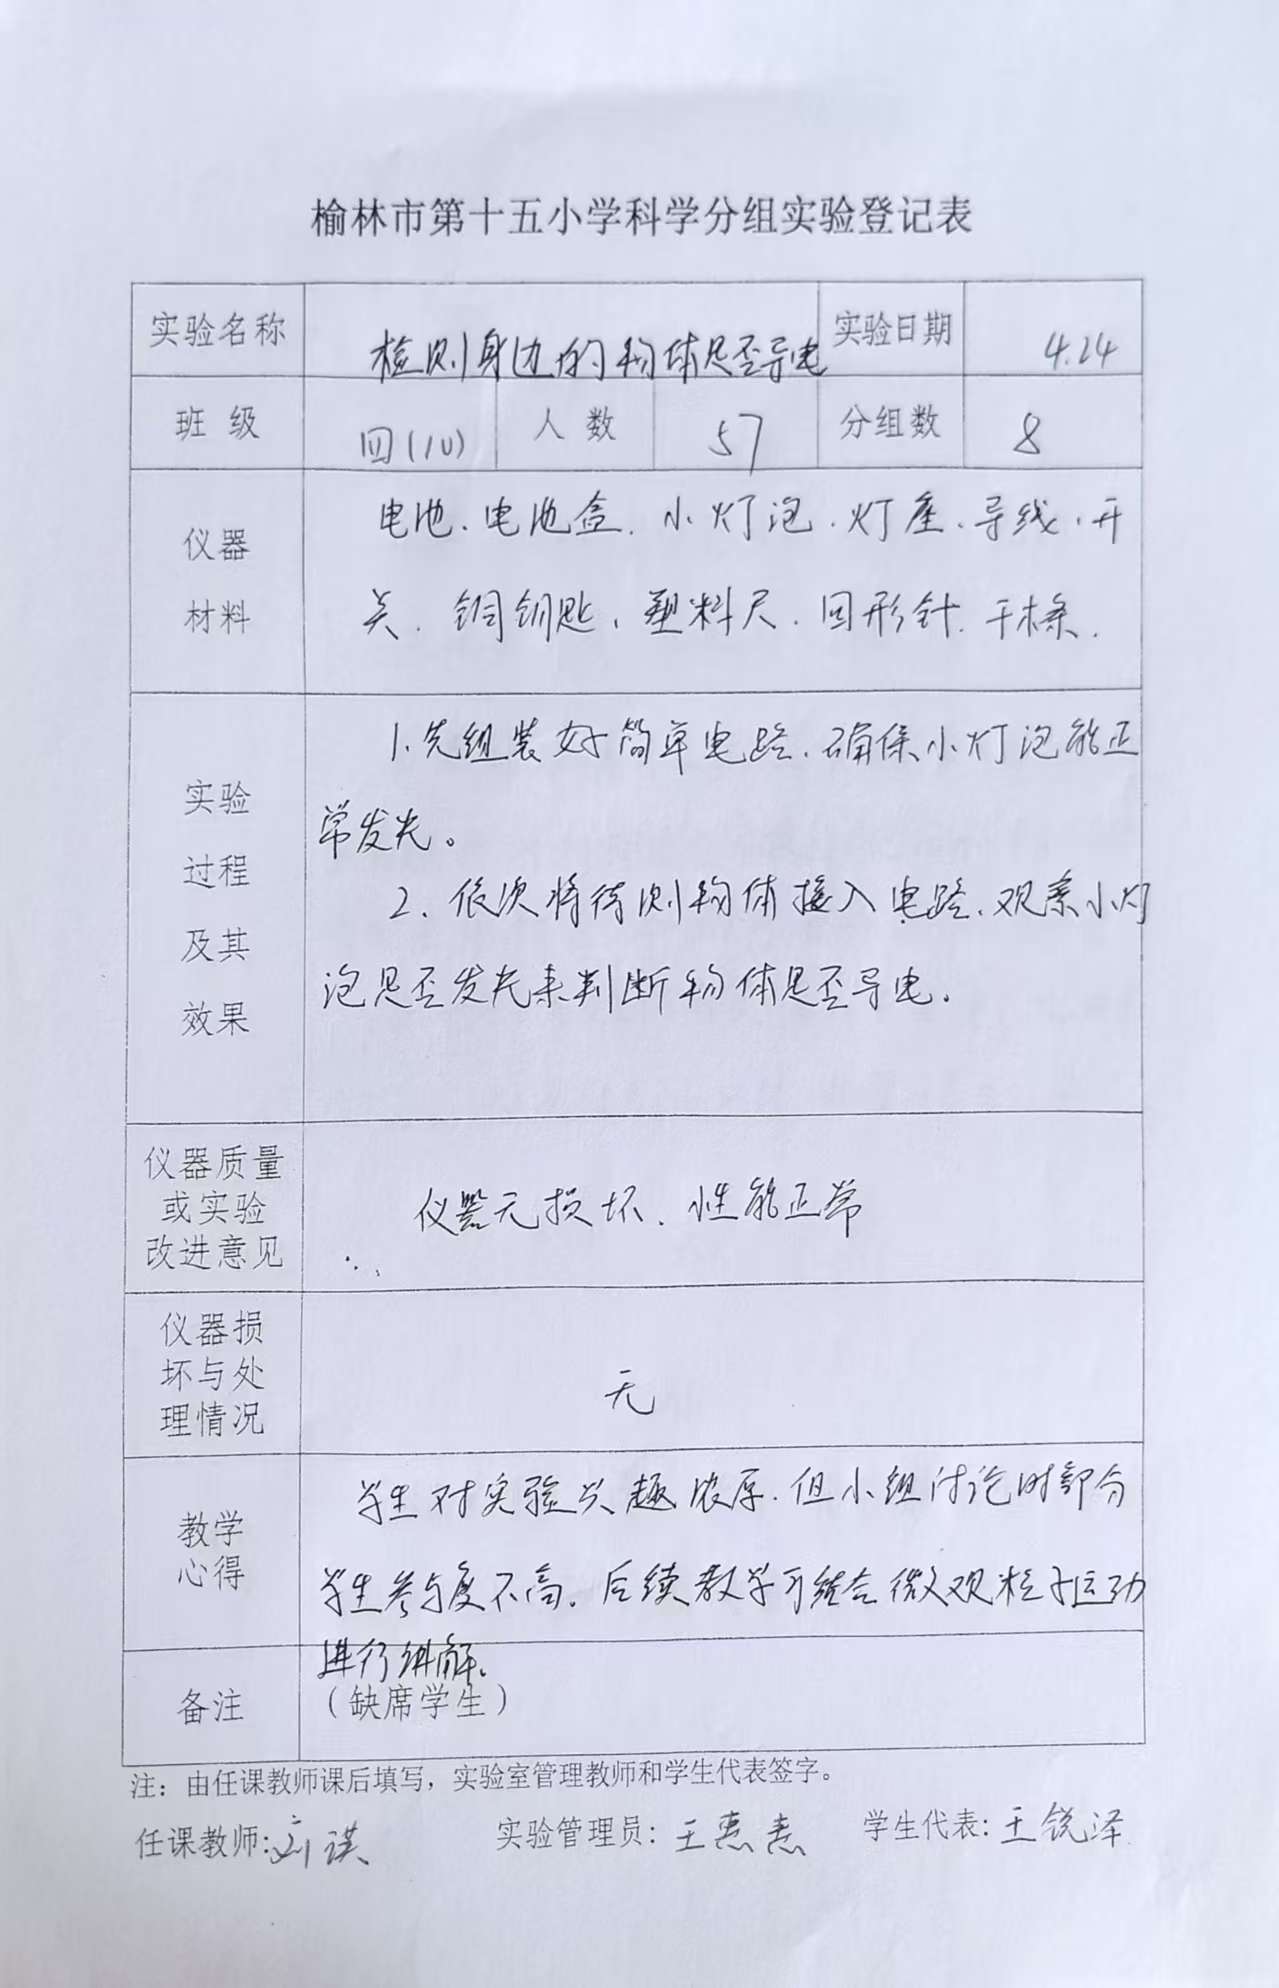 榆林市第十五小学科学分组实验登记表
实验名称 检测身边的物体是否导电 实验日期 4.24
班 级 四(10) 人 数 57 分组数 8
仪器
材料
电池、电池盒、小灯泡、灯座、导线、开
关、铜钥匙、塑料尺、回形针、干木条.
实验
过程
及其
效果
1.先组装好简单电路、确保小灯泡能正
常发光。
2. 依次将待测物体接入电路、观察小灯
泡是否发光来判断物体是否导电.
仪器质量
或实验
改进意见
仪器无损坏、性能正常
仪器损
坏与处
理情况
无
教学
心得
学生对实验兴趣浓厚.但小组讨论时部分
学生参与度不高.后续教学可结合微观粒子运动
进行讲解.
备注 （缺席学生）
注：由任课教师课后填写，实验室管理教师和学生代表签字。
任课教师:刘琪 实验管理员：王惠惠 学生代表:王锐泽